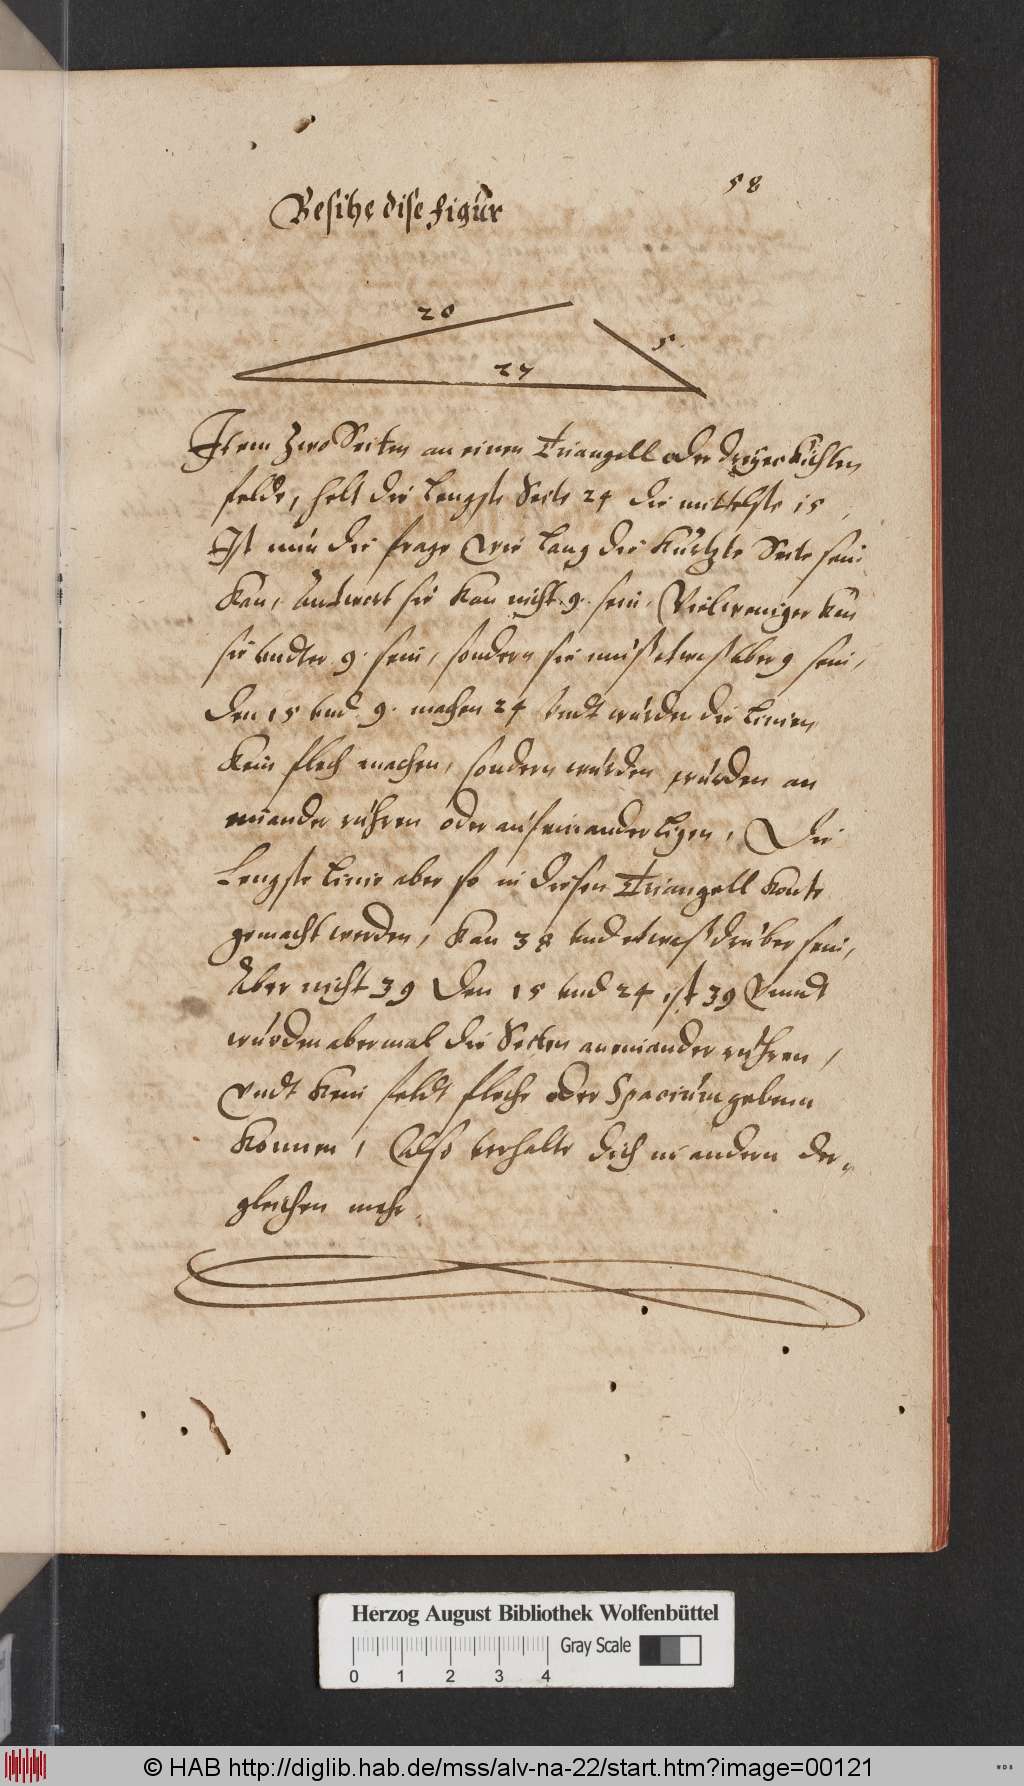 58
Besihe dise figur
20
5
27
Item Zwo Seiten an einen Triangell oder dreyeckichten
felde, helt die lengste Seite 24 die mittelste 15,
Ist nun die frage wie lang die kürtzte Seite sein
kan, Antwort sie kan nicht 9. sein, Vielweniger kan
sie undter 9. sein, sondern sie muß etwaß uber 9 sein,
den 15 und 9. machen 24 undt würden die linien
kein flech machen, sondern würden würden an
einander rühren oder auf einander ligen, Die
lengste linie aber so in diesen Triangell konte
gemacht werden, kan 38 und etwaß drüber sein,
Aber nicht 39 den 15 und 24 ist 39 Unndt
würden abermal die Seiten aneinander rühren,
Undt kein feldt fleche oder Spacium gebenn
konnen, Also verhalte dich in andern der„
gleichen mehr.
Herzog August Bibliothek Wolfenbüttel
Gray Scale
0 1 2 3 4
© HAB http://diglib.hab.de/mss/alv-na-22/start.htm?image=00121